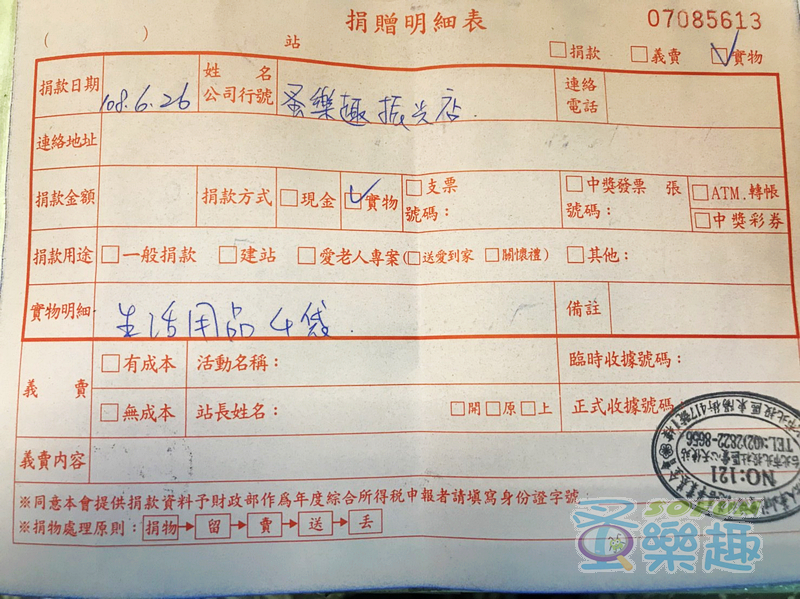 捐贈明細表
07085613
( ) 站
□捐款 □義賣 ☑實物
捐款日期 108.6.26 姓名 公司行號 蚤樂趣振興店 連絡電話
連絡地址
捐款金額 捐款方式 □現金 ☑實物 □支票 號碼： □中獎發票 張 號碼： □ATM.轉帳 □中獎彩券
捐款用途 □一般捐款 □建站 □愛老人專案(□送愛到家 □關懷禮) □其他：
實物明細 生活用品4袋 備註
義賣 □有成本 活動名稱： 臨時收據號碼：
□無成本 站長姓名： □開□原□上 正式收據號碼：
義賣內容
※同意本會提供捐款資料予財政部作為年度綜合所得稅申報者請填寫身份證字號
※捐物處理原則：捐物→留→賣→送→丟
NO:121
台北市北投社區愛心天使站
TEL:(02)2822-8656
北投區東陽街417號1樓
蚤樂趣